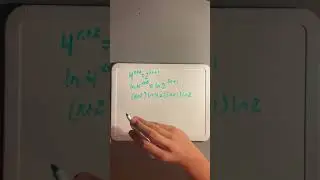 4^(x+2) = 2^(x+1)
ln 4^(x+2) = ln 2^(x+1)
(x+2) ln 4 = (x+1) ln 2